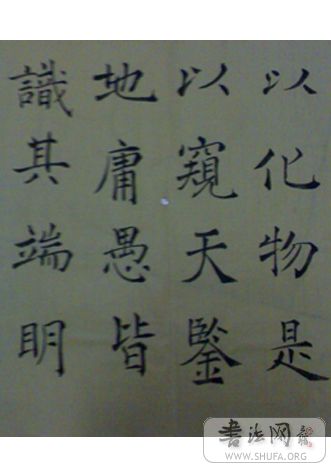 以化物是
以窺天鑒
地庸愚皆
識其端明
書法网
WWW.SHUFA.ORG